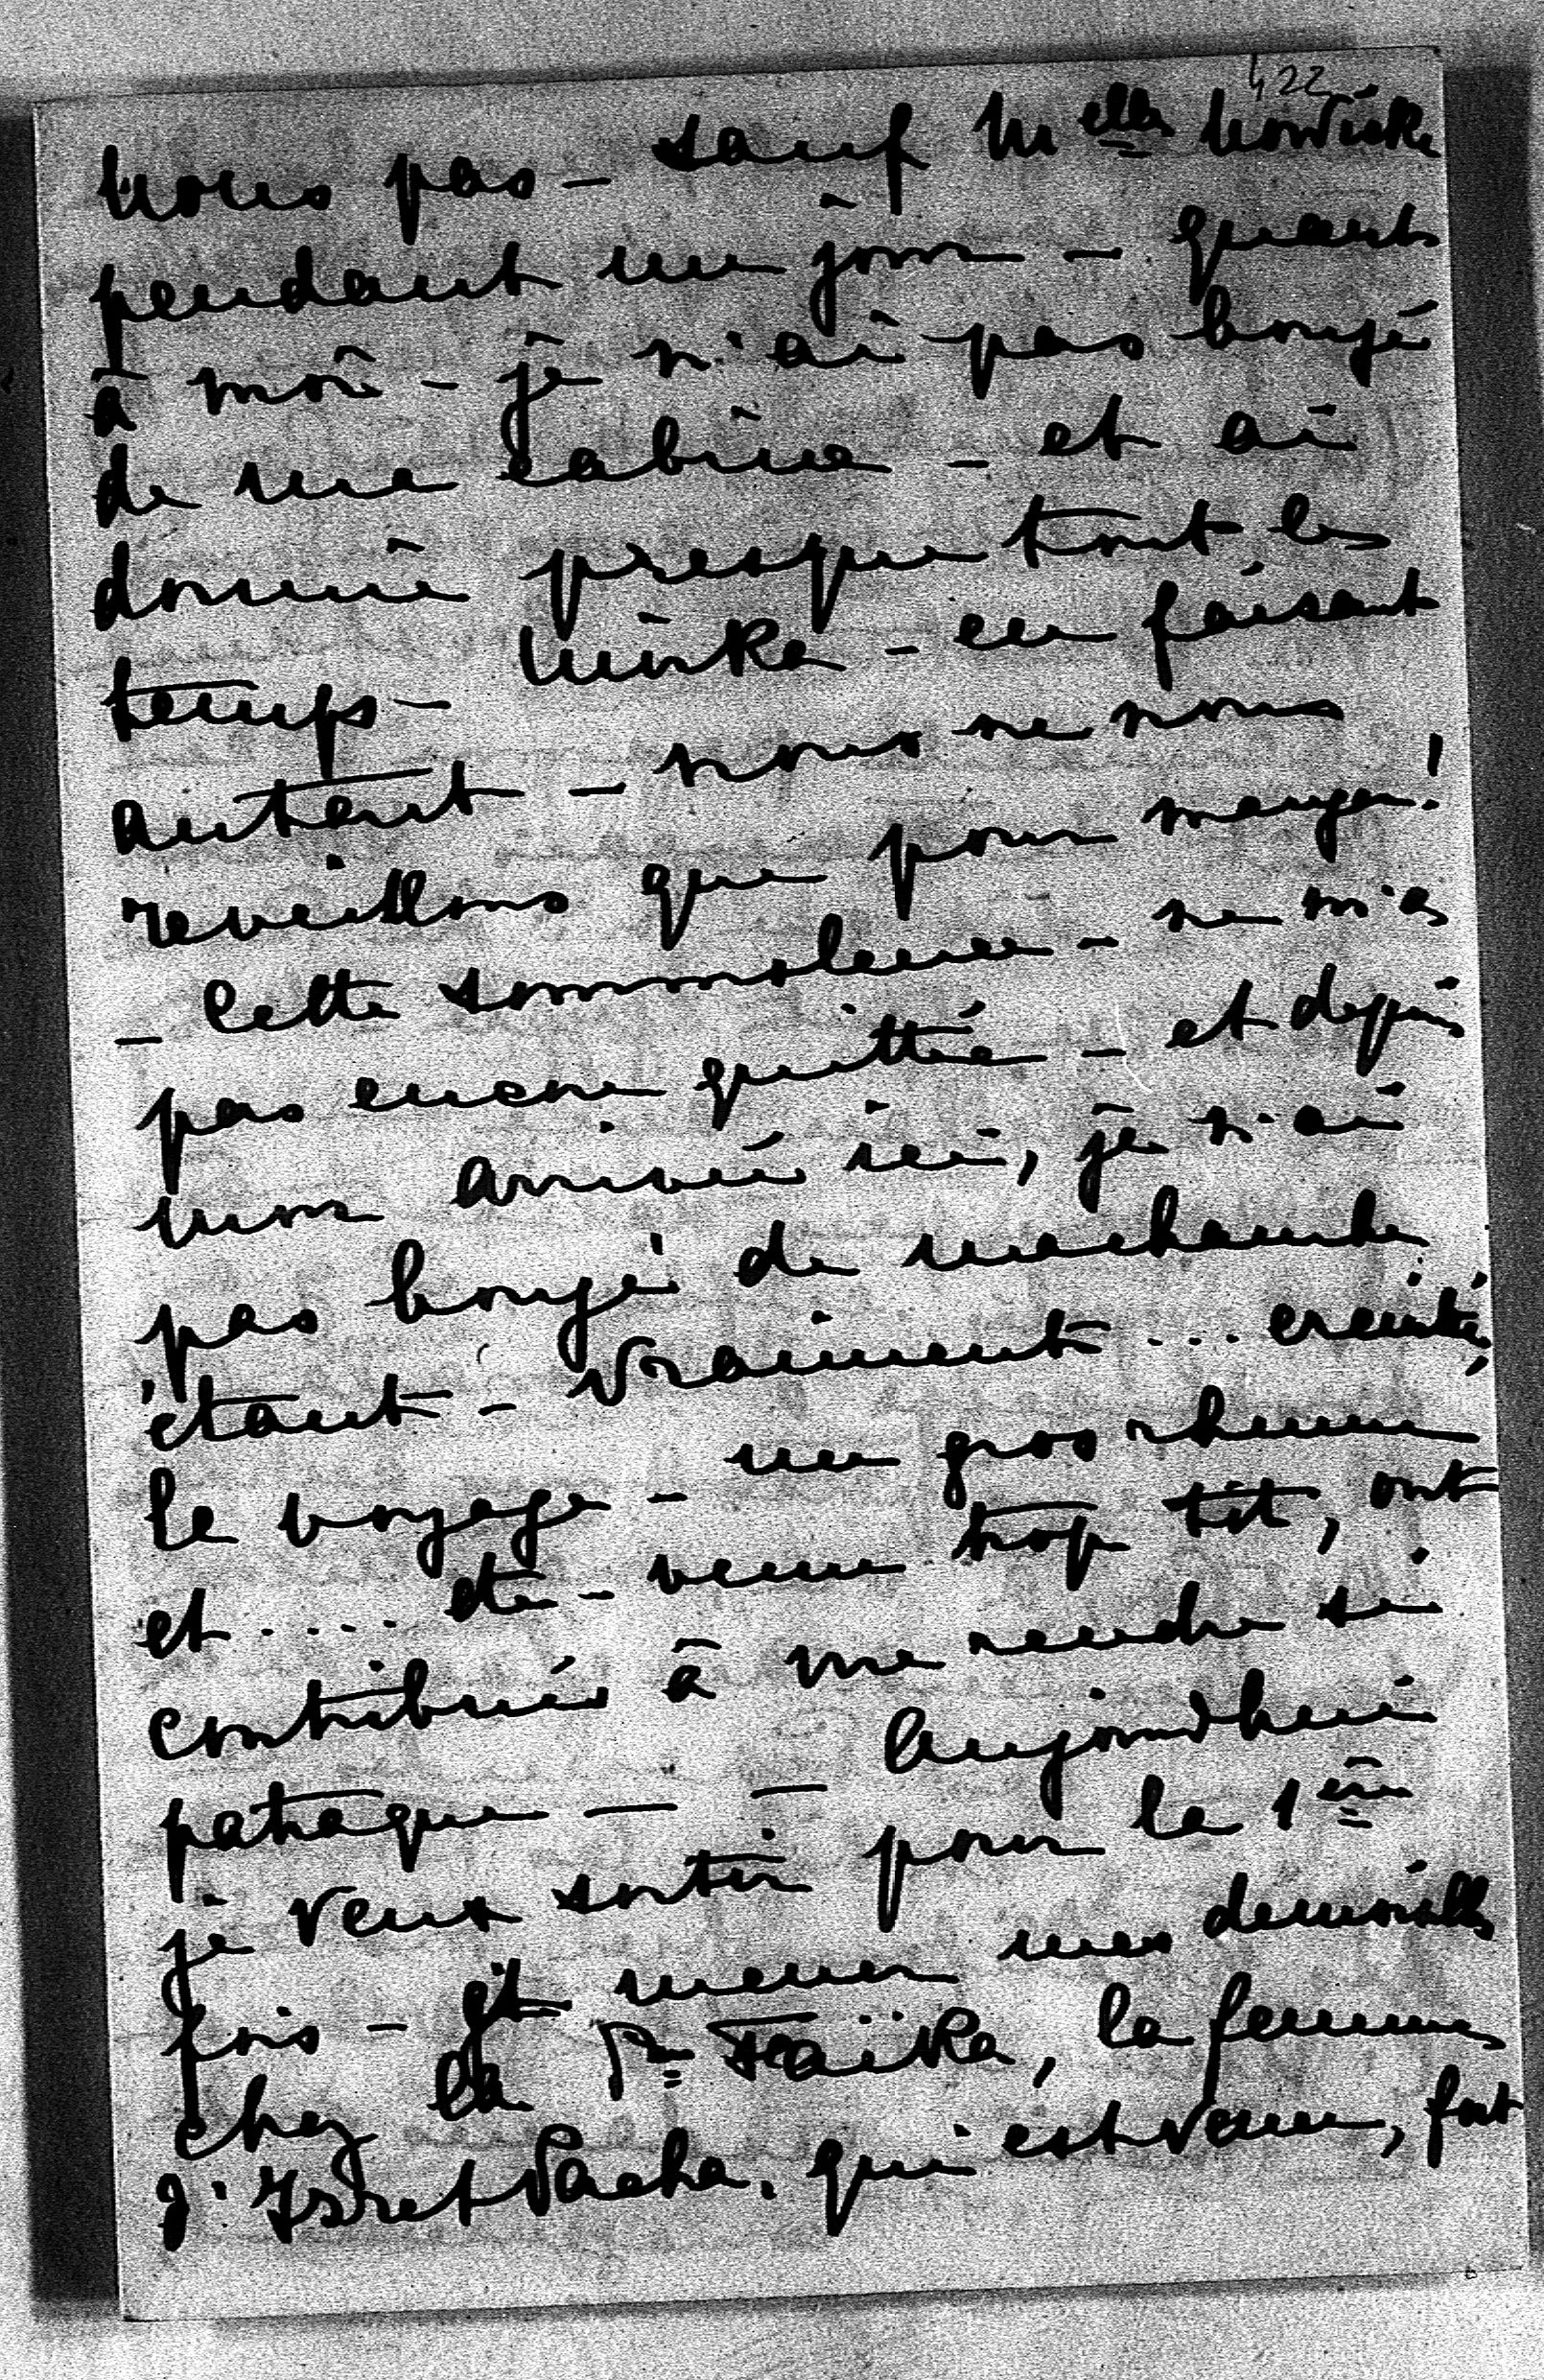 422
nous pas - sauf Melles
pendant un jour - quant
à moi - je n'ai pas bougé
de ma cabine - et ai
dormi presque tout le
temps - Minka - en faisant
autant - nous ne nous
reveillons que pour manger!
- Cette somnolence - ne m'a
pas encore quittée - et depuis
mon arrivée ici, je n'ai
pas bougé de ma chambre
étant - vraiment ... ereintée,
le voyage - un gros rhume
et .... etc - venu trop tôt, ont
contribués à me rendre si
patraque — — Aujourd'hui
je veux sortir pour la 1ère
fois - et mener mes demoiselles
chez la Psse Faïka, la femme
d'Isret Pacha. qui est venue, fort